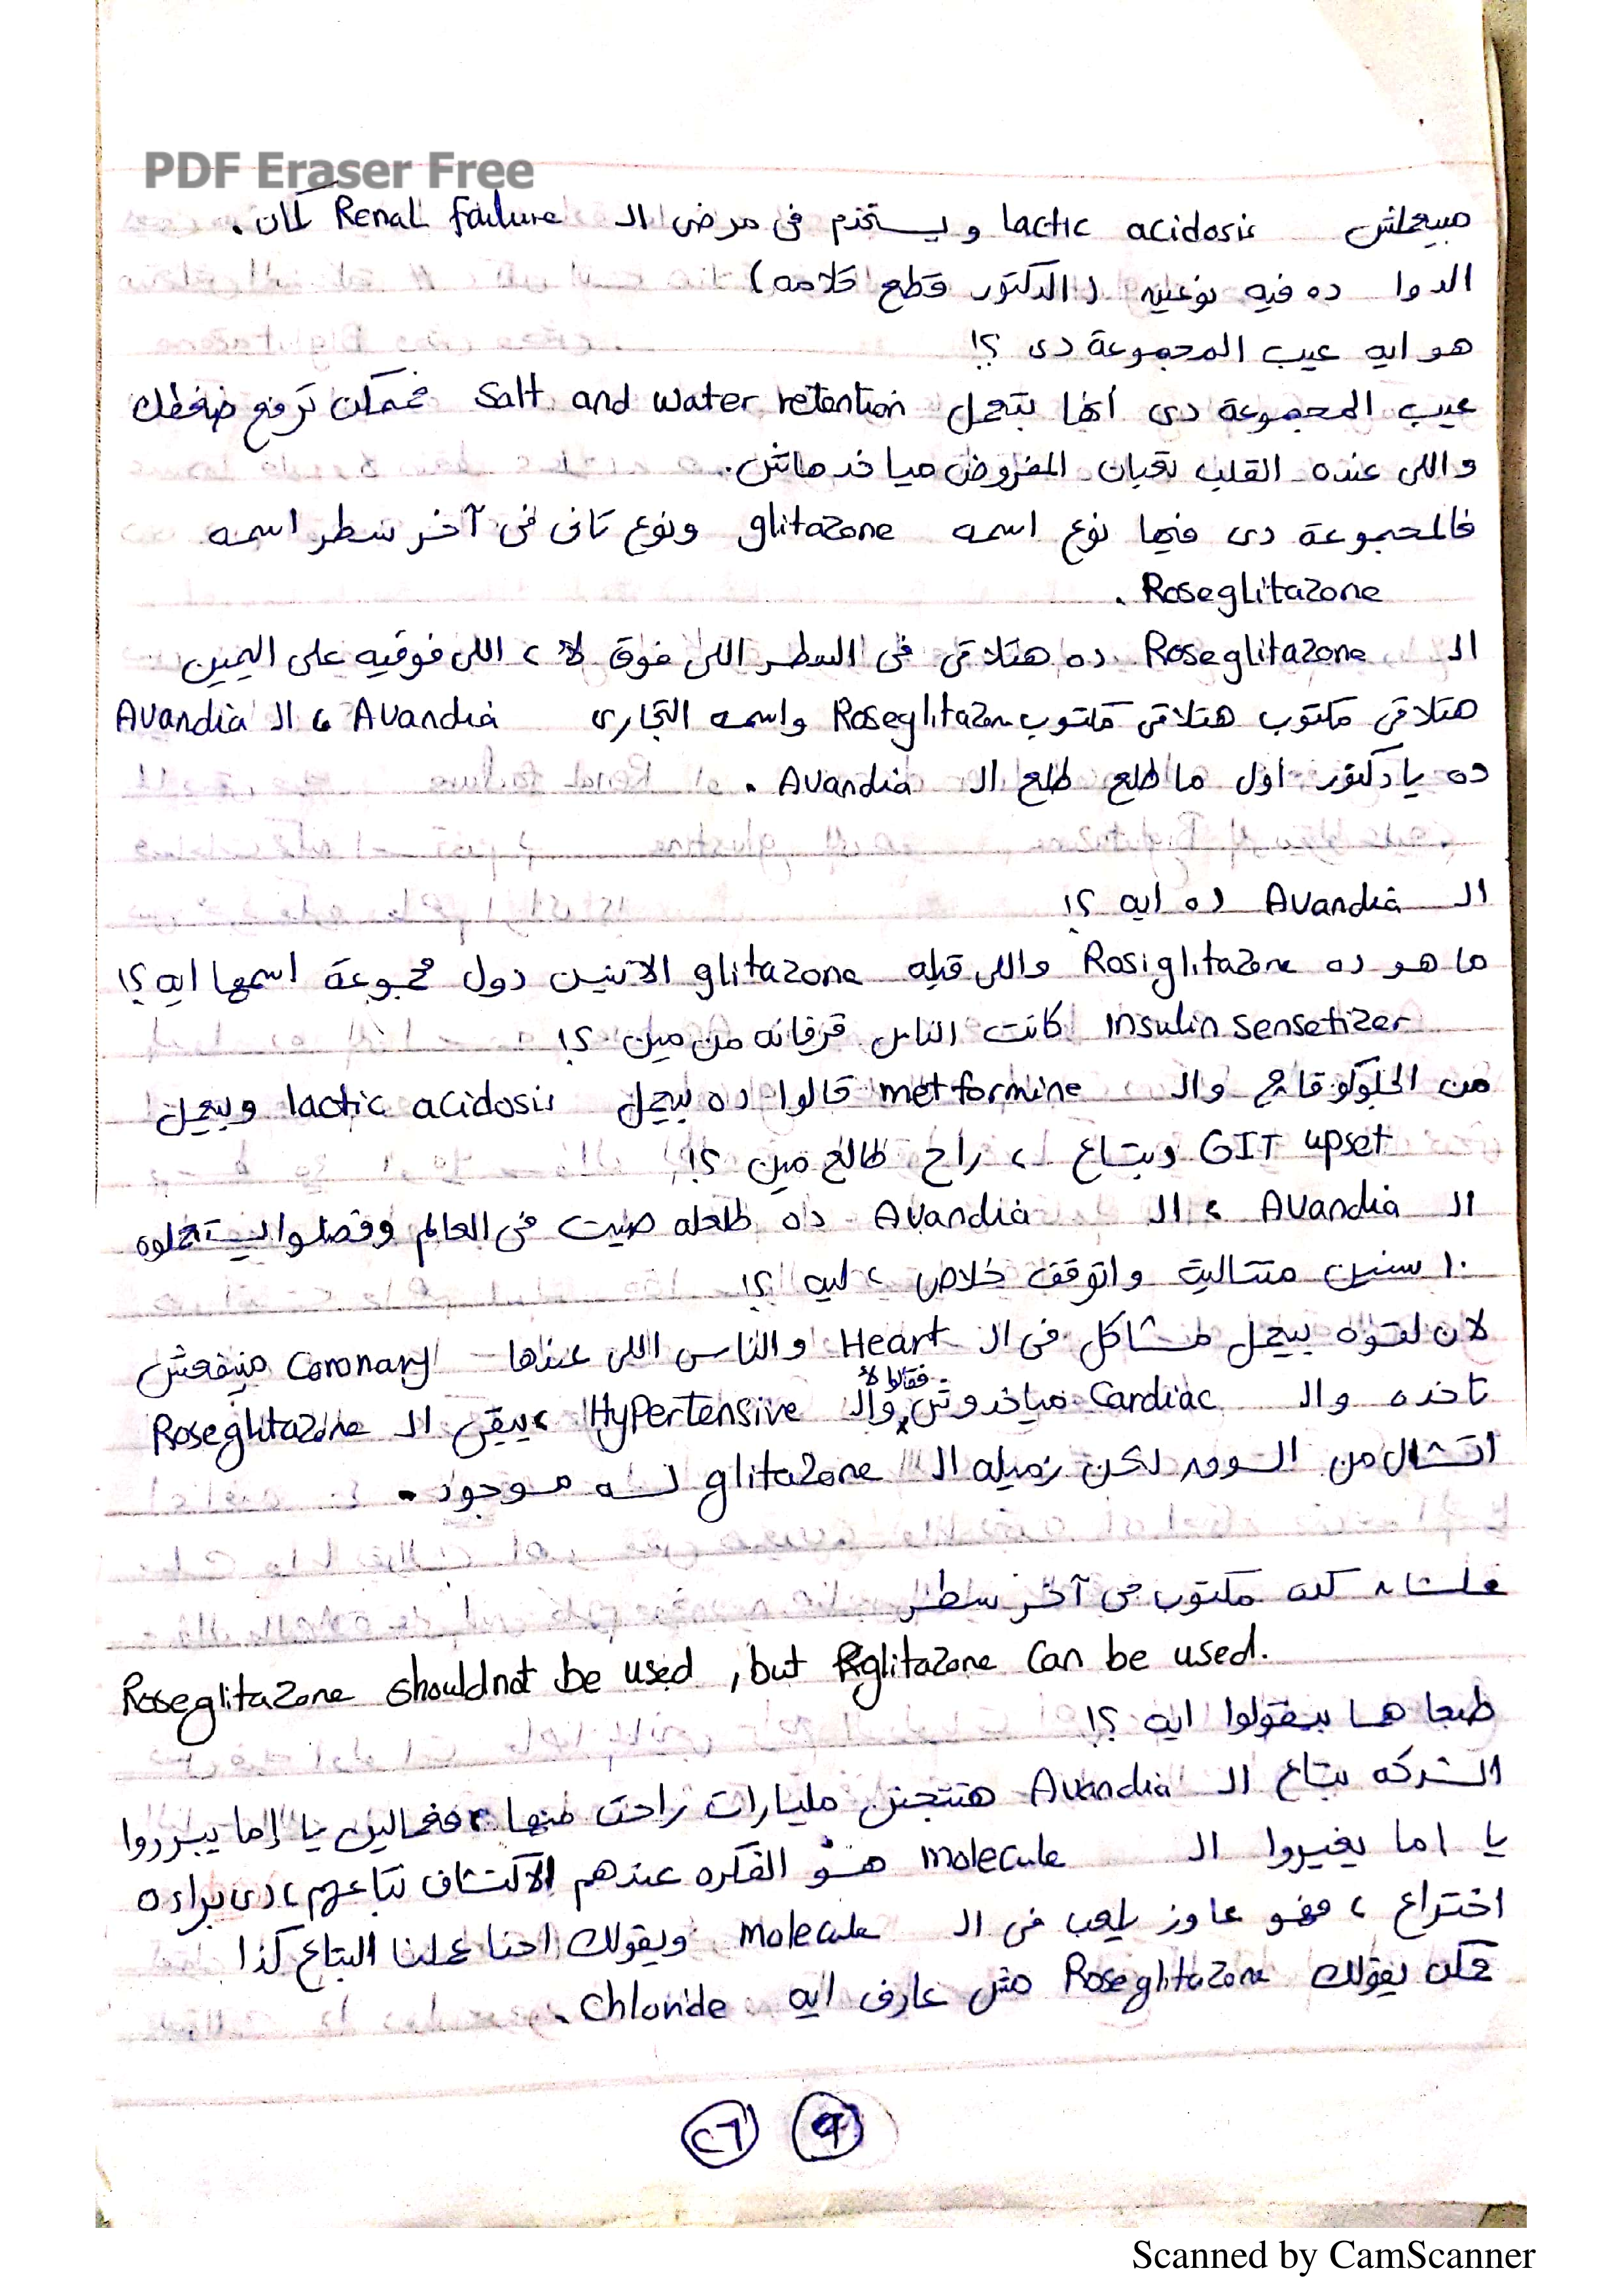 PDF Eraser Free
مبيعملش lactic acidosis ويستخدم فى مرضى الـ Renal failure كمان .
الدوا ده فيه نوعين (الدكتور قطع كلامه)
هو ايه عيب المجموعة دى ؟!
عيب المجموعة دى أنها بتعمل Salt and water retention فممكن ترفع ضغطك
واللى عنده القلب تعبان المفروض مياخدهاش .
فالمجموعة دى فيها نوع اسمه glitazone ونوع تانى فى آخر سطر اسمه
Roseglitazone .
الـ Roseglitazone ده هتلاقى فى السطر اللى فوق لأ ، اللى فوقيه على اليمين
هتلاقى مكتوب هتلاقى مكتوب Roseglitazon واسمه التجارى Avandia ، الـ Avandia
ده يا دكتور أول ما طلع طلع الـ Avandia .
الـ Avandia ده ايه ؟!
ما هو ده Rosiglitazone واللى قبله glitazone الاتنين دول مجموعة اسمها ايه ؟!
Insulin sensetizer كانت الناس قرفانه من مين ؟!
من الجلوكوفاج والـ metformine قالوا ده بيعمل lactic acidosis وبيعمل
GIT upset وبتاع ، راح طالع مين ؟!
الـ Avandia ، الـ Avandia ده طلعله صيت فى العالم وفضلوا يستعملوه
١٠ سنين متتالية واتوقف خلاص ، ليه ؟!
لان لقوه بيعمل مشاكل فى الـ Heart والناس اللى عندها Coronary مينفعش
تاخده والـ Cardiac مياخدوش والـ Hypertensive فقالوا لأ ، يبقى الـ Roseglitazone
اتشال من السوق لكن زميله الـ glitazone لسه موجود .
علشان كده مكتوب فى آخر سطر
Roseglitazone shouldnot be used , but Pglitazone Can be used.
طبعا هما بيقولوا ايه ؟!
الشركه بتاع الـ Avandia هتتجنن مليارات راحت منها ، فعمالين يا إما يبرروا
يا اما يغيروا الـ molecule هو الفكره عندهم الاكتشاف بتاعهم ، دى براءة
اختراع ، فهو عاوز يلعب فى الـ molecule ويقولك احنا عملنا البتاع كذا
ممكن يقولك Roseglitazone مش عارف ايه Chloride .
٩ ٢٦
Scanned by CamScanner